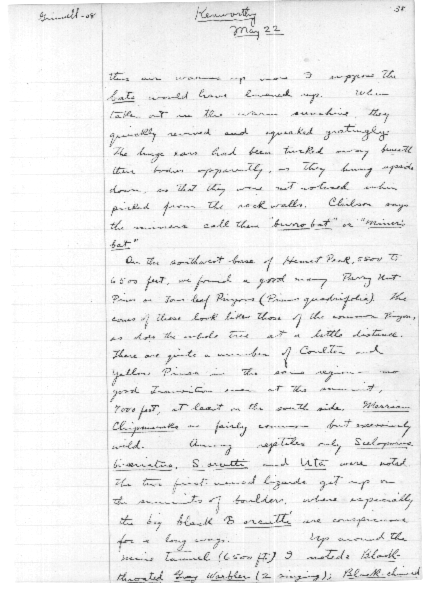 Grinnell-08
Kenworthy
38
May 22
this air warms up now I suppose the
bats would have livened up. When
taken out in the warm sunshine they
quickly revived and squeaked gratingly.
The huge ears had been tucked away beneath
their bodies apparently, as they hung upside
down, so that they were not noticed when
picked from the rock walls. Chilson says
the miners call them "burro bat" or "miner's
bat"
On the southwest base of Hemet Peak, 5800 to
6500 feet, we found a good many Parry Nut
Pines or Four leaf Pinyons (Pinus quadrifolia). The
cones of these look like those of the common Pinyon,
as does the whole tree at a little distance.
There are quite a number of Coulter and
Yellow Pines in the same region no
good Transition even at the summit,
7000 feet, at least on the south side. Merriam
Chipmunks are fairly common but excessively
wild. Among reptiles only Sceloporus
biseriatus, S. orcutti and Uta were noted
The two first named lizards get up on
the summits of boulders, where especially
the big black S orcutti are conspicuous
for a long way. Up around the
mine tunnel (6500 ft) I noted: Black-
throated Gray Warbler (2 singing); Black-chinned